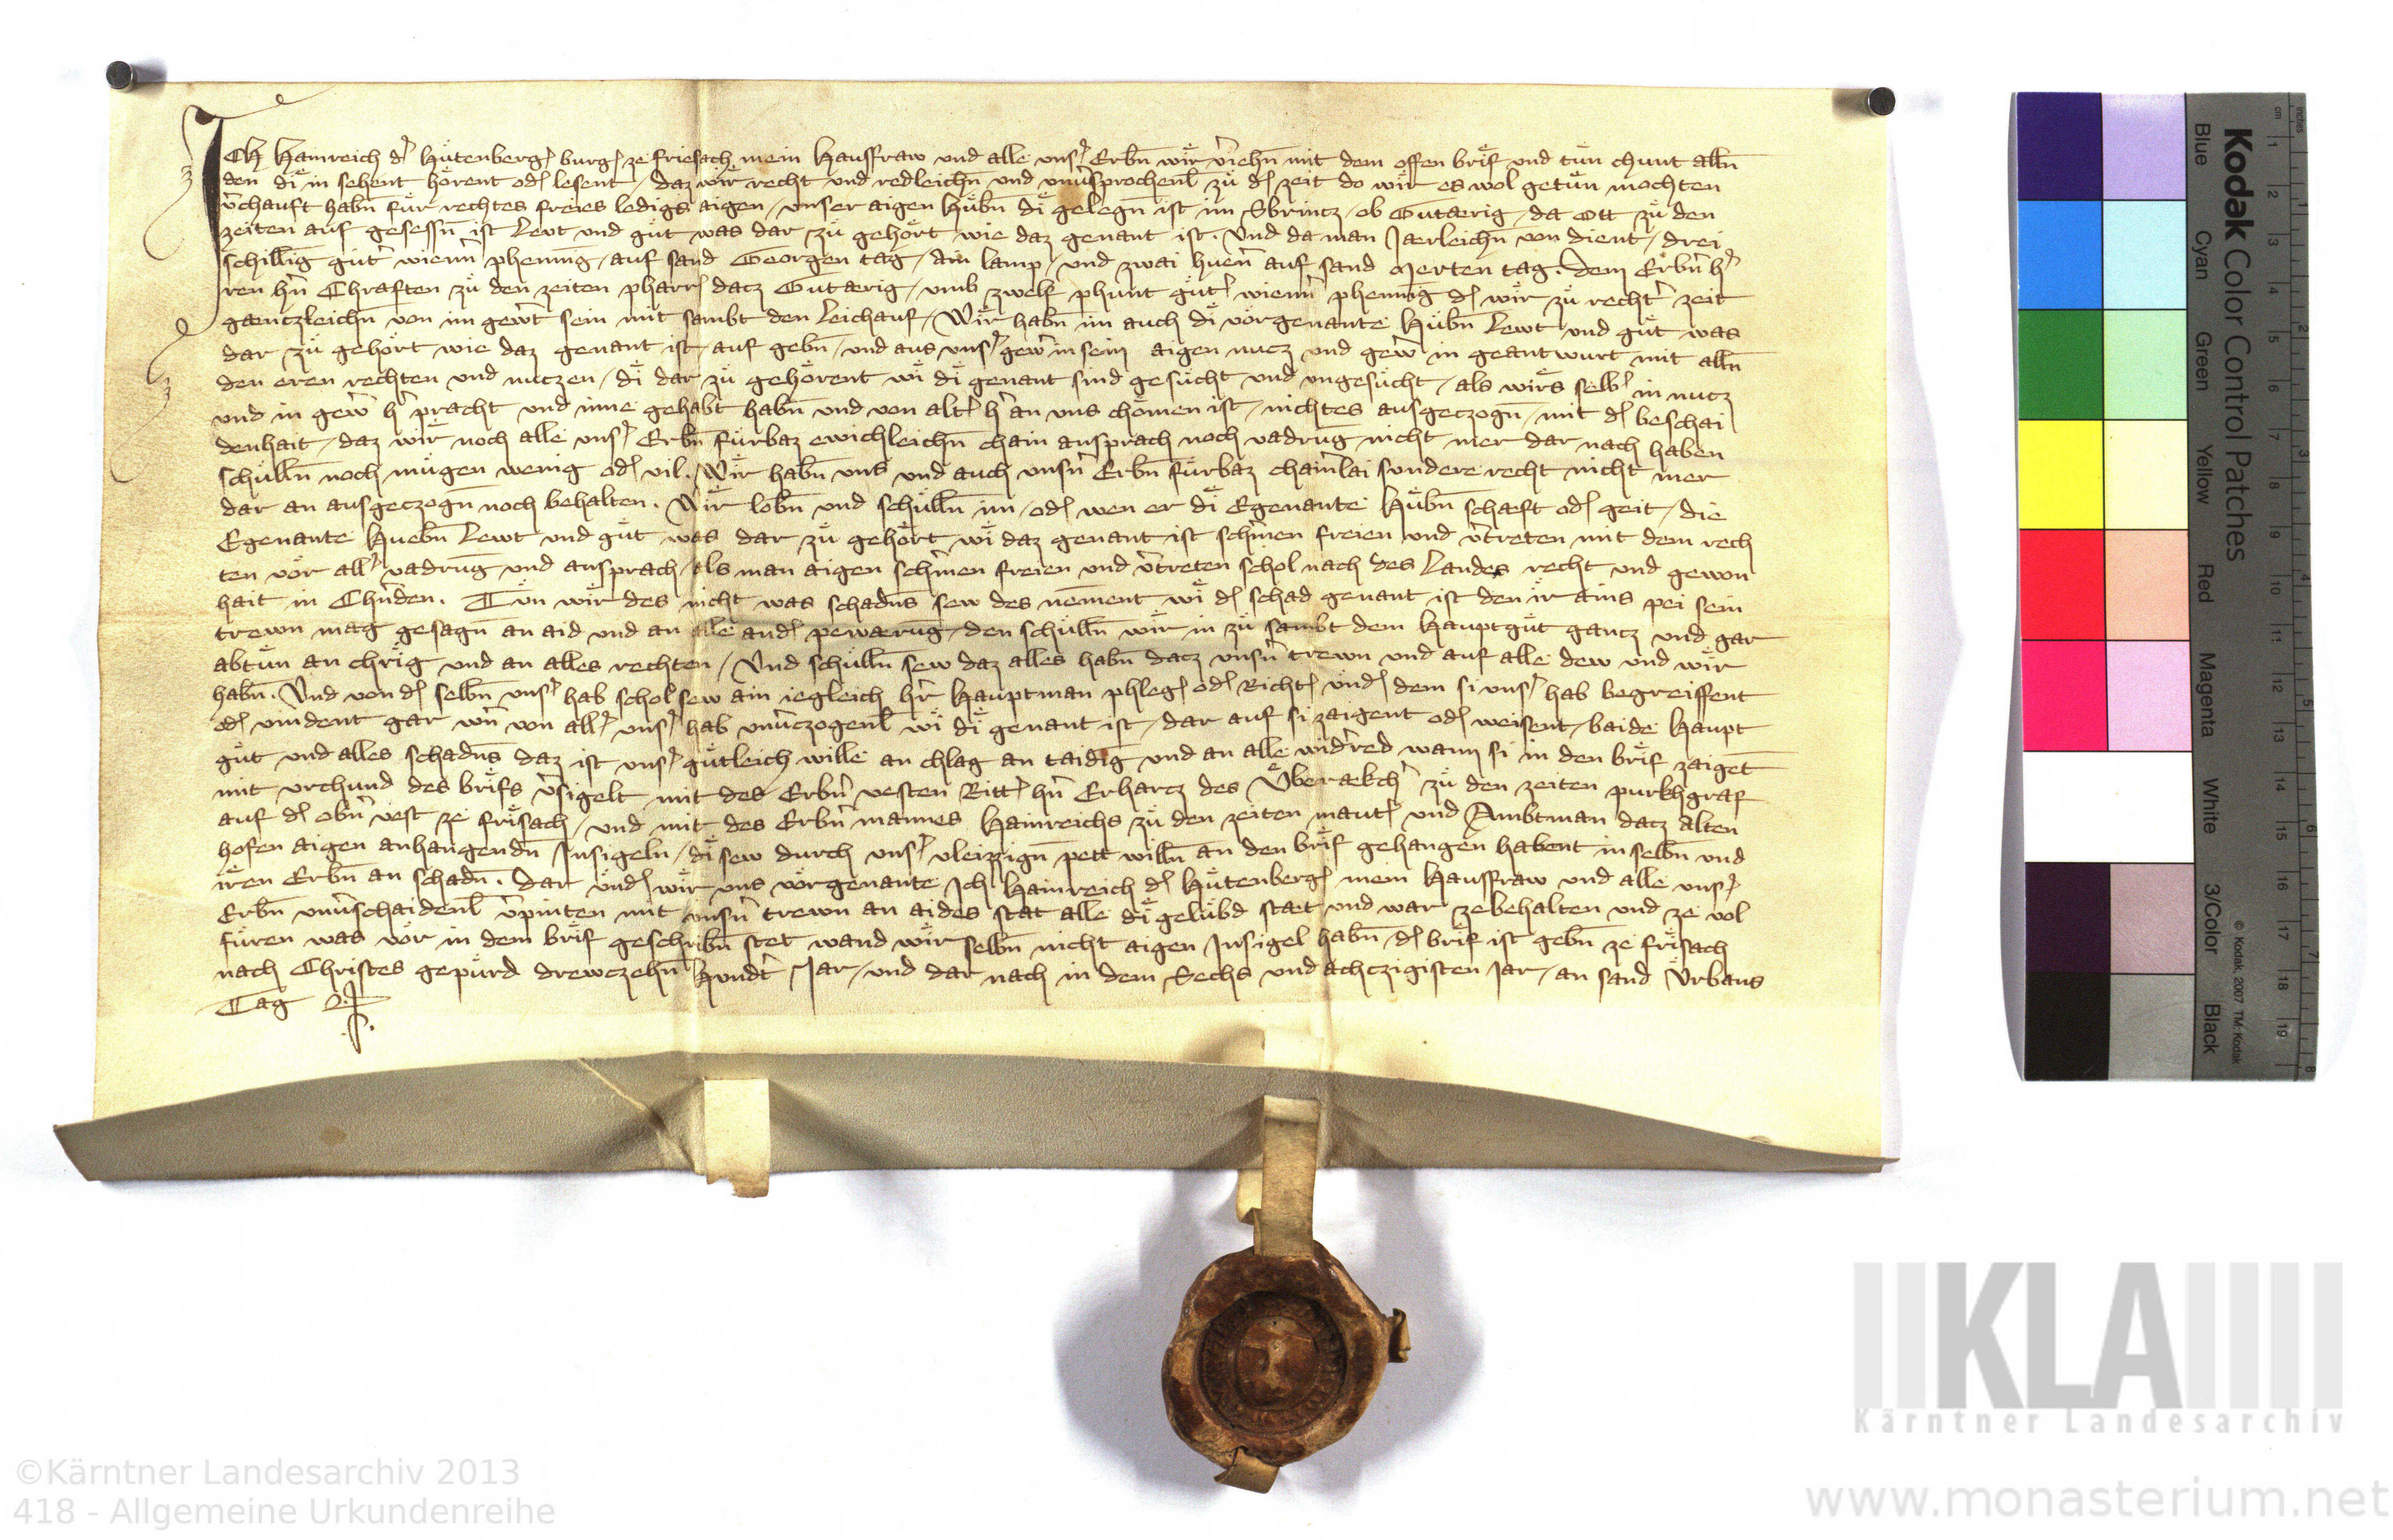 ICH Hainreich d᾽ Hůtenberg᾽ burg᾽ ze friesach mein Hausfraw und alle uns᾽ Erbn̄ wir v᾽iehn̄ mit dem offen brif und tůn chunt alln̄
den di in sehent hörent od᾽ lesent / daz wir recht und redleichn̄ und unv᾽sprochenl̄ zů d᾽ zeit do wir es wol getůn mochten
v᾽chauft habn̄ für rechtes freies ledigs aigen / unser aigen Hůbn̄ di gelegn̄ ist im Sbrintz / ob Gutærig / da Ott zů den
zeiten auf gesessn̄ ist Levt und gůt was dar zů gehört wie daz genant ist. Und da man Jærleichn̄ von dient / drei
schilling gůt᾽ wienn᾽ phening / auf sand Georgen tag / ain lamp / und zwai hven᾽ auf sand Merten tag. dem Erbn᾽ h᾽
ren hn᾽ Chraften zů den zeiten pharr᾽ dacz Gutærig / umb zwelf phunt gůt᾽ wienn᾽ phennīg d᾽ wir zů recht᾽ zeit
gænczleichn̄ von im gew᾽t sein mit sambt den Leichauf / Wir habn̄ im auch di vorgenante Hůbn̄ Lewt und gůt was
dar zů gehört wie daz genant ist / auf gebn̄ / und aus uns᾽ gew᾽ in sein aigen nucz und gew᾽ in geantwurt mit alln̄
den eren rechten und nutzen / di dar zů gehörent wi di genant sind gesůcht und ungesůcht / als wirs selb᾽ in nucz
und in gew᾽ h᾽ pracht und inne gehabt habn̄ und von alt᾽ h᾽ an uns chömen ist / nichtes ausgeczogn̄ / mit d᾽ beschai
denhait / daz wir noch alle uns᾽ Erbn̄ fürbaz ewichleichn̄ chain ansprach noch vadrūg nicht mer dar nach haben
schülln̄ noch mügen wenig od᾽ vil. Wir habn̄ uns und auch unsn᾽ Erbn̄ fürbaz chain᾽lai sundere recht nicht mer
dar an ausgeczogn̄ noch behalten. Wir lobn̄ und schülln̄ im / od᾽ wen er di Egenante Hůbn̄ schaft od᾽ geit / die
Egenante Huebn̄ Lewt und gůt was dar zů gehört wi daz genant ist sch᾽men freien und v᾽treten mit dem rech
ten vor all᾽ vadrūg und ansprach / als man aigen sch᾽men freien und v᾽treten schol nach des Landes recht und gewon
hait in Ch᾽nden. Tůn wir des nicht was schadn̄s sew des nēment wi d᾽ schad genant ist den ir ains pei sein
trewn mag gesagn̄ an aid und an alle and᾽ pewærūg / den schülln̄ wir in zů sambt dem Hauptgůt gancz und gar
abtůn an chrig und an alles rechten / Und schülln̄ sew daz alles habn̄ dacz unsn᾽ trewn und auf alle dew und wir
habn̄. Und von d᾽ selbn̄ uns᾽ hab schol sew ain iegleich h᾽r Hauptman phleg᾽ od᾽ Richt᾽ und᾽ dem si uns᾽ hab begreiffent
od᾽ vindent gar w᾽n von all᾽ uns᾽ hab unv᾽czogenl̄ wi di genant ist / dar auf si zaigent od᾽ weisent / baide Haupt
gůt und alles schadn̄s daz ist uns᾽ gůtleich wille an chlag an taidīg und an alle wid᾽red wann si in den brif zaigēt
mit urchund des brifs v᾽sigelt mit des Erbn᾽ vesten Ritt᾽ hn᾽ Erharcz des Überækch᾽ zů den zeiten purkhgraf
auf d᾽ obn᾽ vest ze frisach / und mit des Erbn᾽ mannes Hainreichs zů den zeiten maut᾽ und Ambtman dacz Alten
hofen aigen anhangendn̄ Insigeln / di sew durch uns᾽ vleizzign̄ pett willn̄ an den brif gehangen habent in selbn̄ und
iren Erbn̄ an schadn̄. Dar und᾽ wir uns vorgenante Ich Hainreich d᾽ Hůtenberg᾽ mein Hausfraw und alle uns᾽
Erbn̄ unv᾽schaidenl̄ v᾽pinten mit unsn᾽ trewn an aides stat alle di gelübd stæt und war ze behalten und ze vol
füren was vor in dem brif geschribn̄ stet wand wir selbn̄ nicht aigen Insigel habn̄ / d᾽ brif ist gebn̄ ze frisach
nach Christes gepürd drewczehn̄ Hundt᾽ Jar / und dar nach in dem Sechs und achczigisten Jar / an sand Urbans
Tag
Kodak Color Control Patches
Blue Cyan Green Yellow Red Magenta White 3/Color Black
© Kodak, 2007 TM: Kodak
cm 1 2 3 4 5 6 7 8 9 10 11 12 13 14 15 16 17 18 19
inches 1 2 3 4 5 6 7 8
KLA
Kärntner Landesarchiv
www.monasterium.net
©Kärntner Landesarchiv 2013
418 - Allgemeine Urkundenreihe